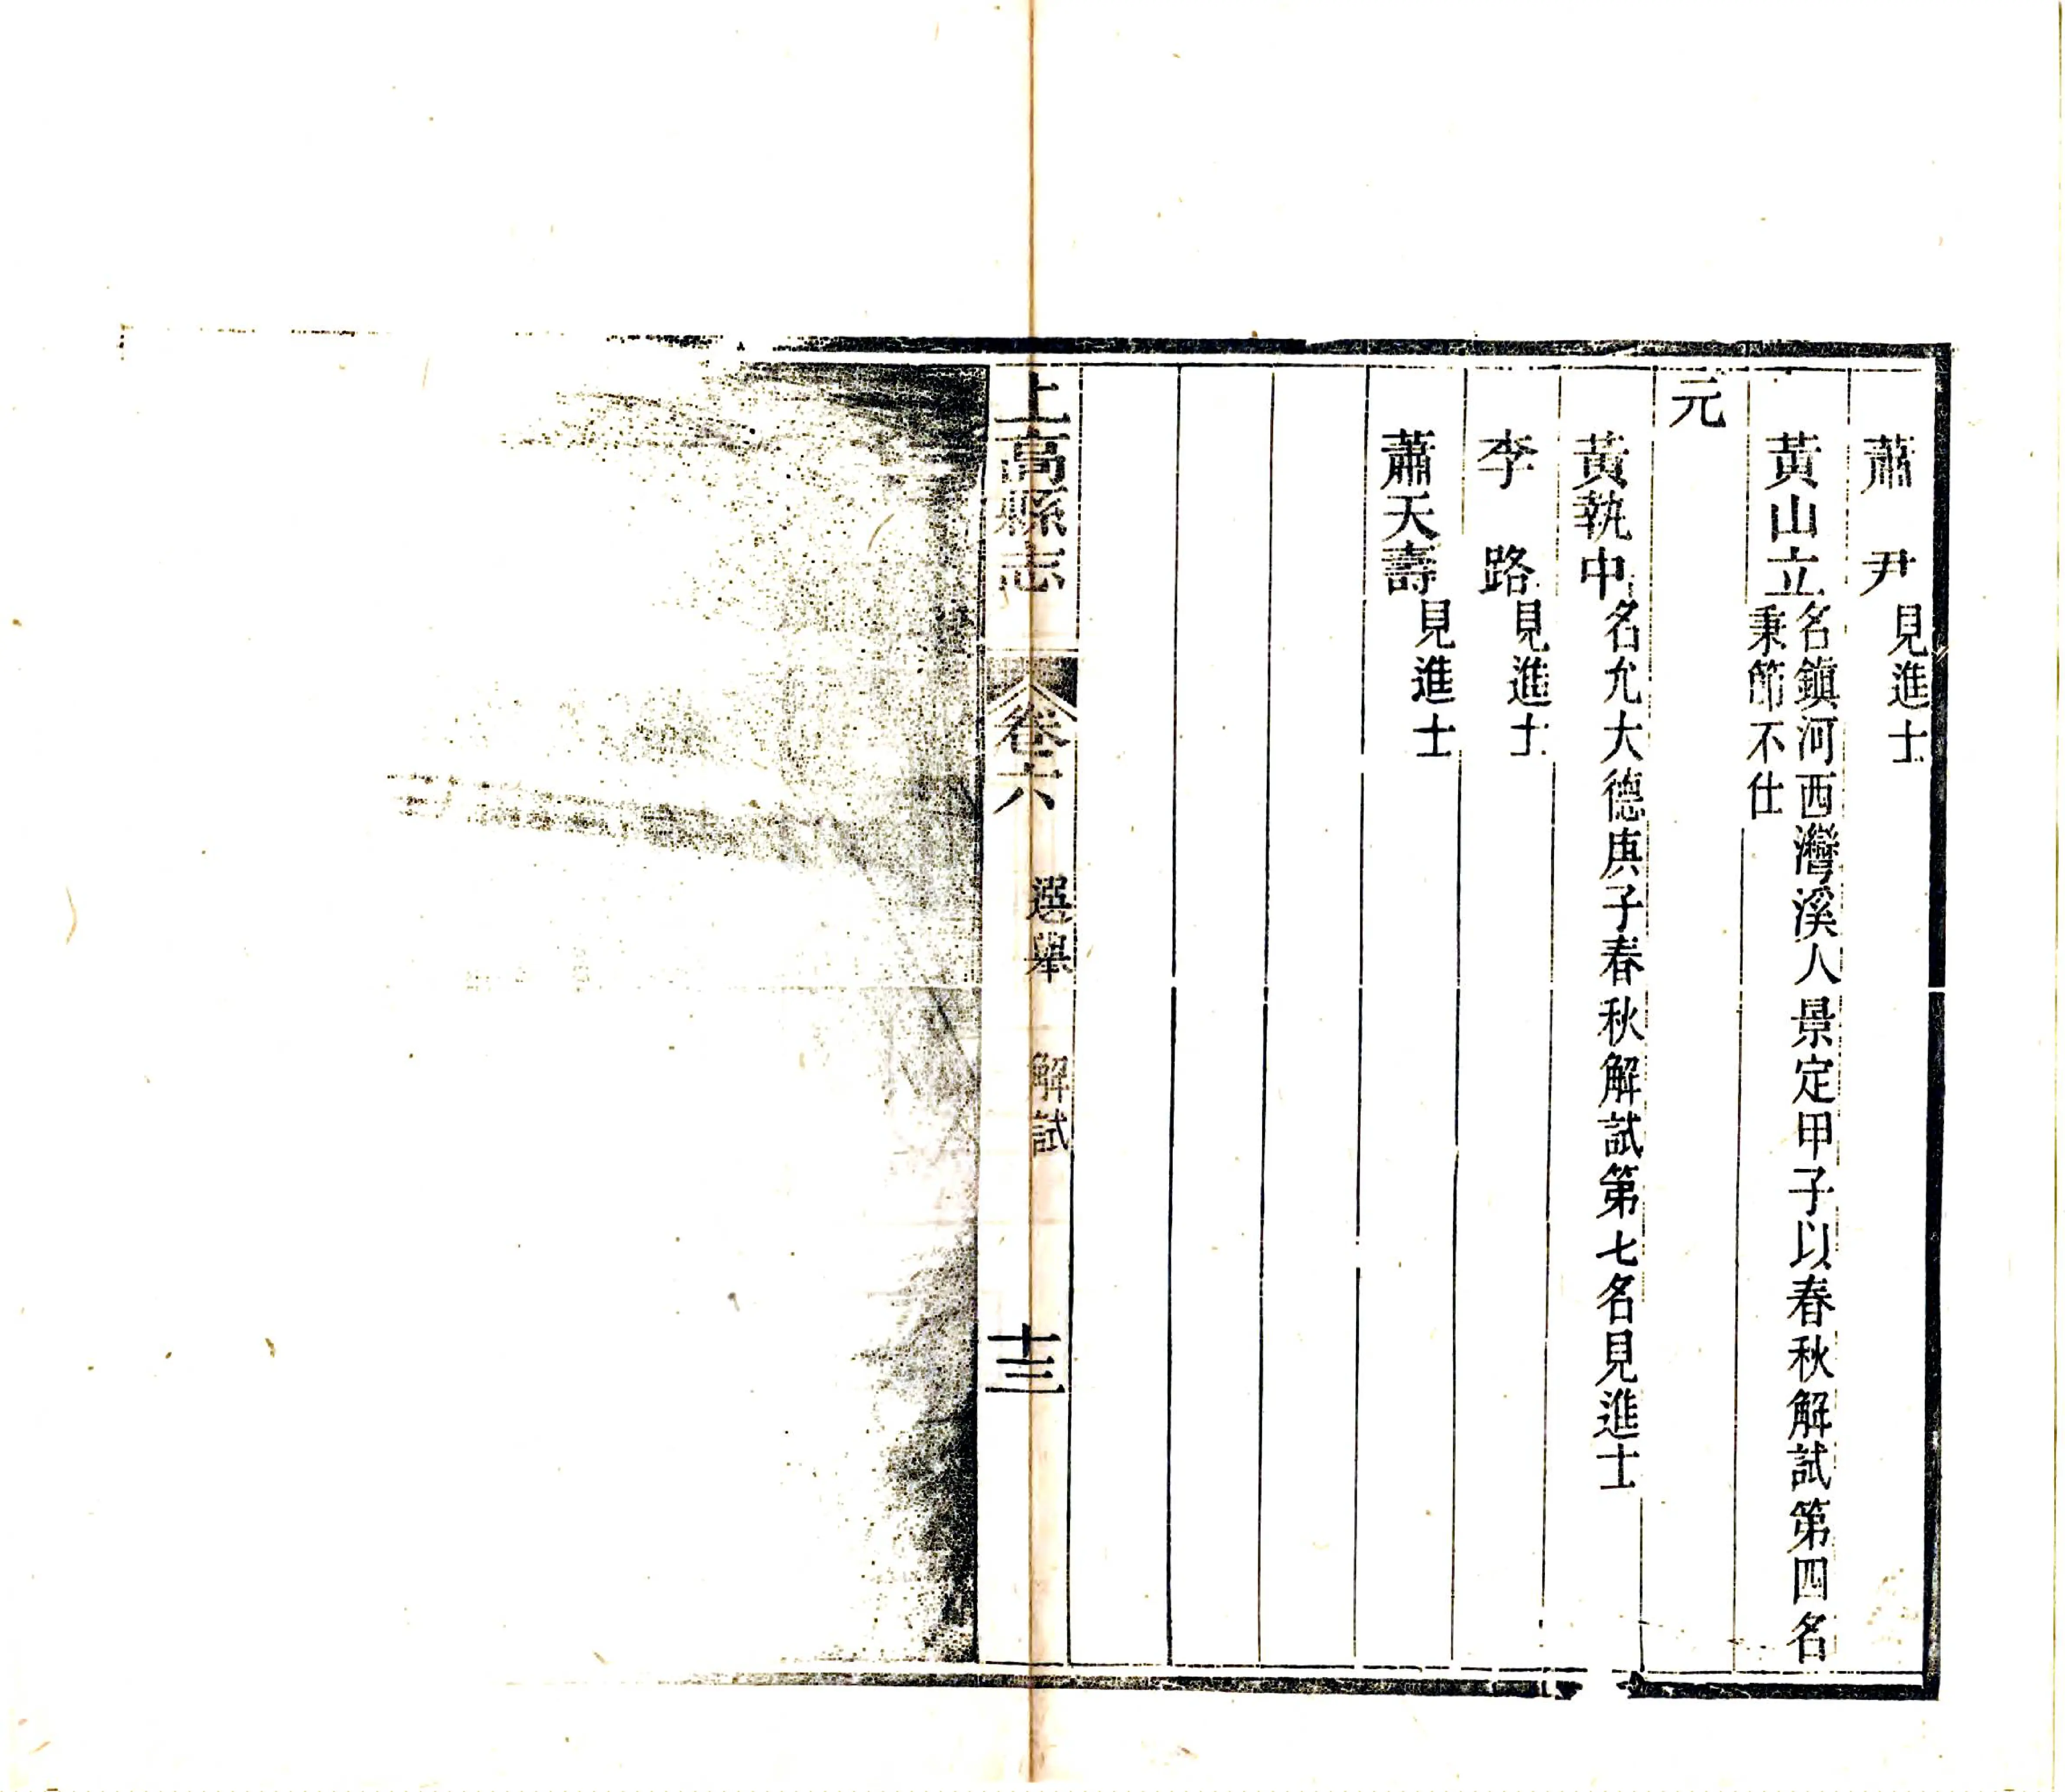 蕭尹見進士
黃山立名鎭河西灣溪人景定甲子以春秋解試第四名
秉節不仕
元
黃執中名允大德庚子春秋解試第七名見進士
李路見進士
蕭天壽見進士
上高縣志 卷六 選舉 解試 十三